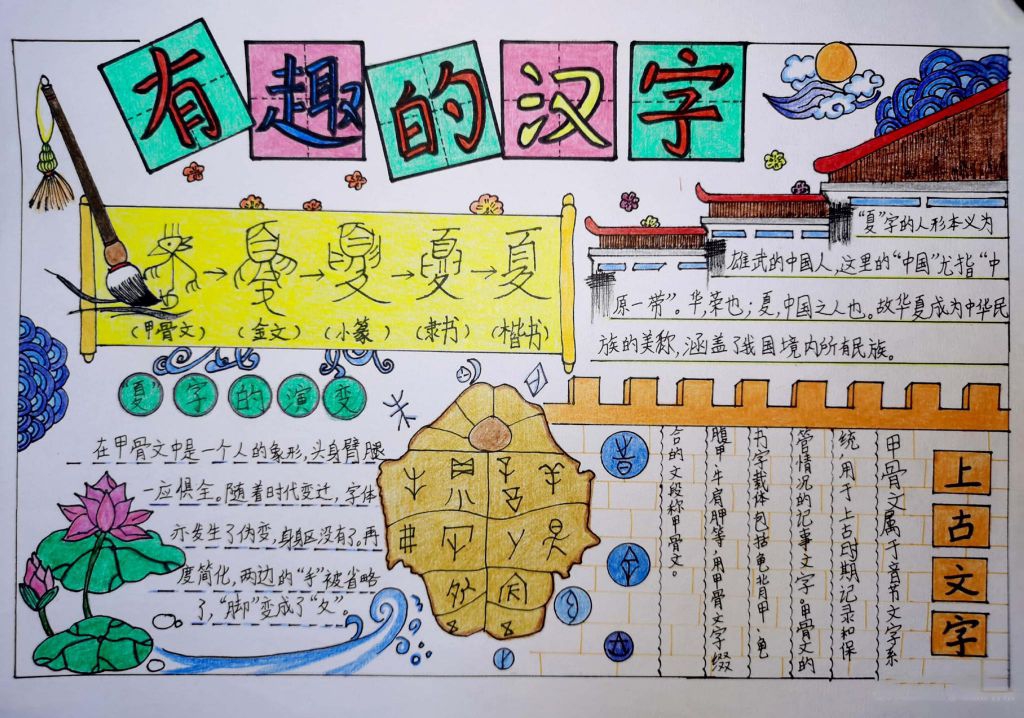 有趣的汉字
夏 夏
（甲骨文） （金文） （小篆） （隶书） （楷书）
“夏”字的人形本义为
雄武的中国人,这里的“中国”尤指“中
原一带”。华,荣也；夏,中国之人也。故“华夏成为中华民
族的美称,涵盖了我国境内所有民族。
“夏”字的演变
在甲骨文中是一个人的象形,头身臂腿
一应俱全。随着时代变迁,字体
亦发生了伪变,身躯没有了。再
度简化,两边的“手”被省略
了,“脚”变成了“夂”。
上古文字
甲骨文属于音节文字系
统,用于上古时期记录和保
管情况的记事文字。甲骨文的
书字载体包括龟背甲、龟
腹甲、牛肩胛等,用甲骨文字缀
合的文段称甲骨文。